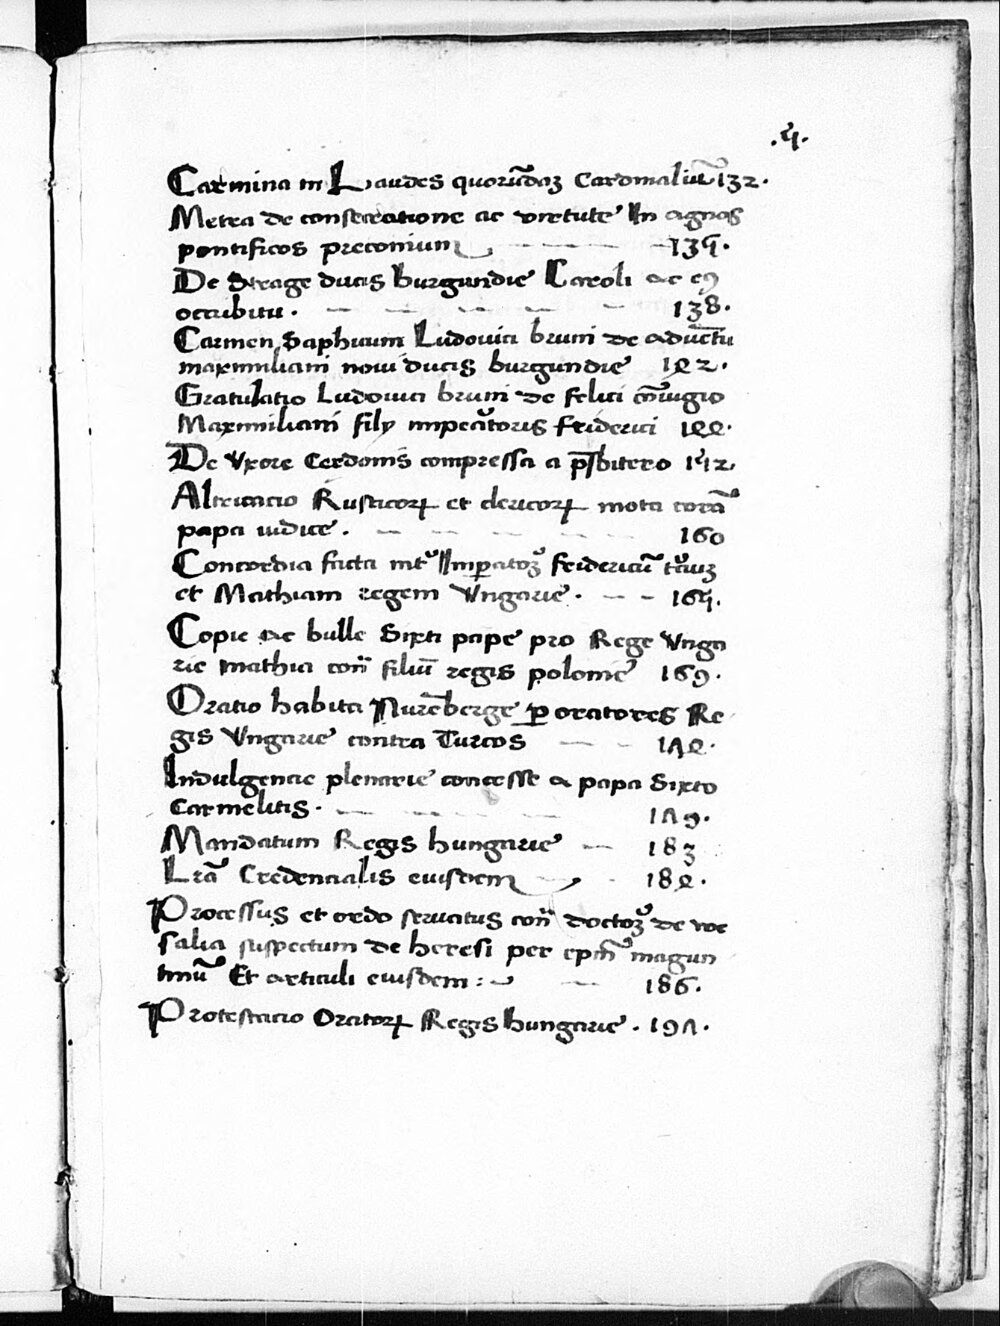 .5.
Carmina in Laudes quorūdaꝫ Cardinaliū 132.
Metra de consecratione ac virtute In agnos
pontificos preconium 135.
De Strage ducis burgundie Caroli ac eꝯ
occubitu. 138.
Carmen Saphicum Ludovici bruni de advētu
maximiliani novi ducis burgundie 142.
Gratulatio Ludovici bruni de felici cōiugio
Maximiliani filij imperatoris friderici 144.
De Vxore Cerdonis compressa a p̄sbitero 152.
Altricacio Rusticoꝝ et clericoꝝ mota corā
papa iudice. 160
Concordia facta int̾ Imꝑatoꝫ fridericū t̾ciuꝫ
et Mathiam regem Vngarie. 165.
Copie ac bulle Sixti pape pro Rege Vnga
rie mathia con̄ filiū regis polonie 169.
Oratio habita Nurēberge ꝑ oratores Re
gis Vngarie contra Turcos 174.
Indulgencie plenarie concesse a papa Sixto
Carmelitis. 179.
Mandatum Regis hungarie 183
Lrā Credencialis eiusdem 184.
Processus et ordo servatus con̄ doctoꝫ de we
salia suspectum de heresi per epm̄ magun
tinū Et articuli eiusdem: 186.
Protestacio Oratoꝝ Regis hungarie. 197.